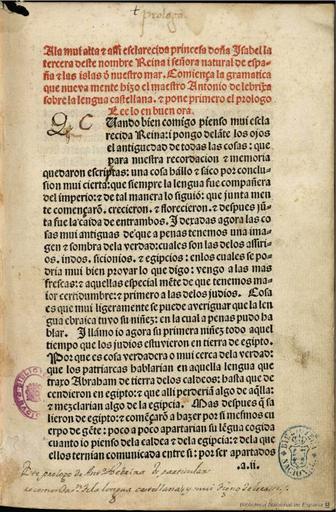 prologo
A la mui alta ⁊ assi esclarecida princesa doña Isabel la
tercera deste nombre Reina i señora natural de espa-
ña ⁊ las islas d̄ nuestro mar. Comiença la gramatica
que nueva mente hizo el maestro Antonio de lebrixa
sobre la lengua castellana. ⁊ pone primero el prologo
Lee lo en buen ora.
Cuando bien comigo pienso mui escla
recida Reina: i pongo delāte los ojos
el antiguedad de todas las cosas: que
para nuestra recordacion ⁊ memoria
quedaron escriptas: una cosa hállo ⁊ saco por conclu-
sion mui cierta: que siempre la lengua fue compañera
del imperio: ⁊ de tal manera lo siguió: que junta men
te començarō. crecieron. ⁊ florecieron. ⁊ despues jū-
ta fue la caida de entrambos. I dexadas agora las co
sas mui antiguas de que a penas tenemos una ima-
gen ⁊ sombra dela verdad: cuales son las delos assiri-
os. indos. sicionios. ⁊ egipcios: enlos cuales se po-
dria mui bien provar lo que digo: vengo a las mas
frescas: ⁊ aquellas especial mēte de que tenemos ma-
ior certidumbre: ⁊ primero a las delos judios. Cosa
es que mui ligera mente se puede averiguar que la len-
gua ebraica tuvo su niñez: en la cual a penas pudo ha
blar. I llamo io agora su primera niñez todo aquel
tiempo que los judios estuvieron en tierra de egipto.
Por que es cosa verdadera o mui cerca dela verdad:
que los patriarcas hablarian en aquella lengua que
traxo Abraham de tierra delos caldeos: hasta que de
cendieron en egipto: ⁊ que alli perderiā algo de aq̄lla:
⁊ mezclarian algo dela egipcia. Mas despues q̄ sa
lieron de egipto: ⁊ començarō a hazer por si mesmos cu
erpo de gēte: poco a poco apartarian su lēgua cogida
cuanto io pienso dela caldea ⁊ dela egipcia: ⁊ dela que
ellos ternian comunicada entre si: por ser apartados
a.ii.
Este prologo de Anto Nebrixa
de la lengua castellana, y mui digno de leerse
Biblioteca Nacional de España